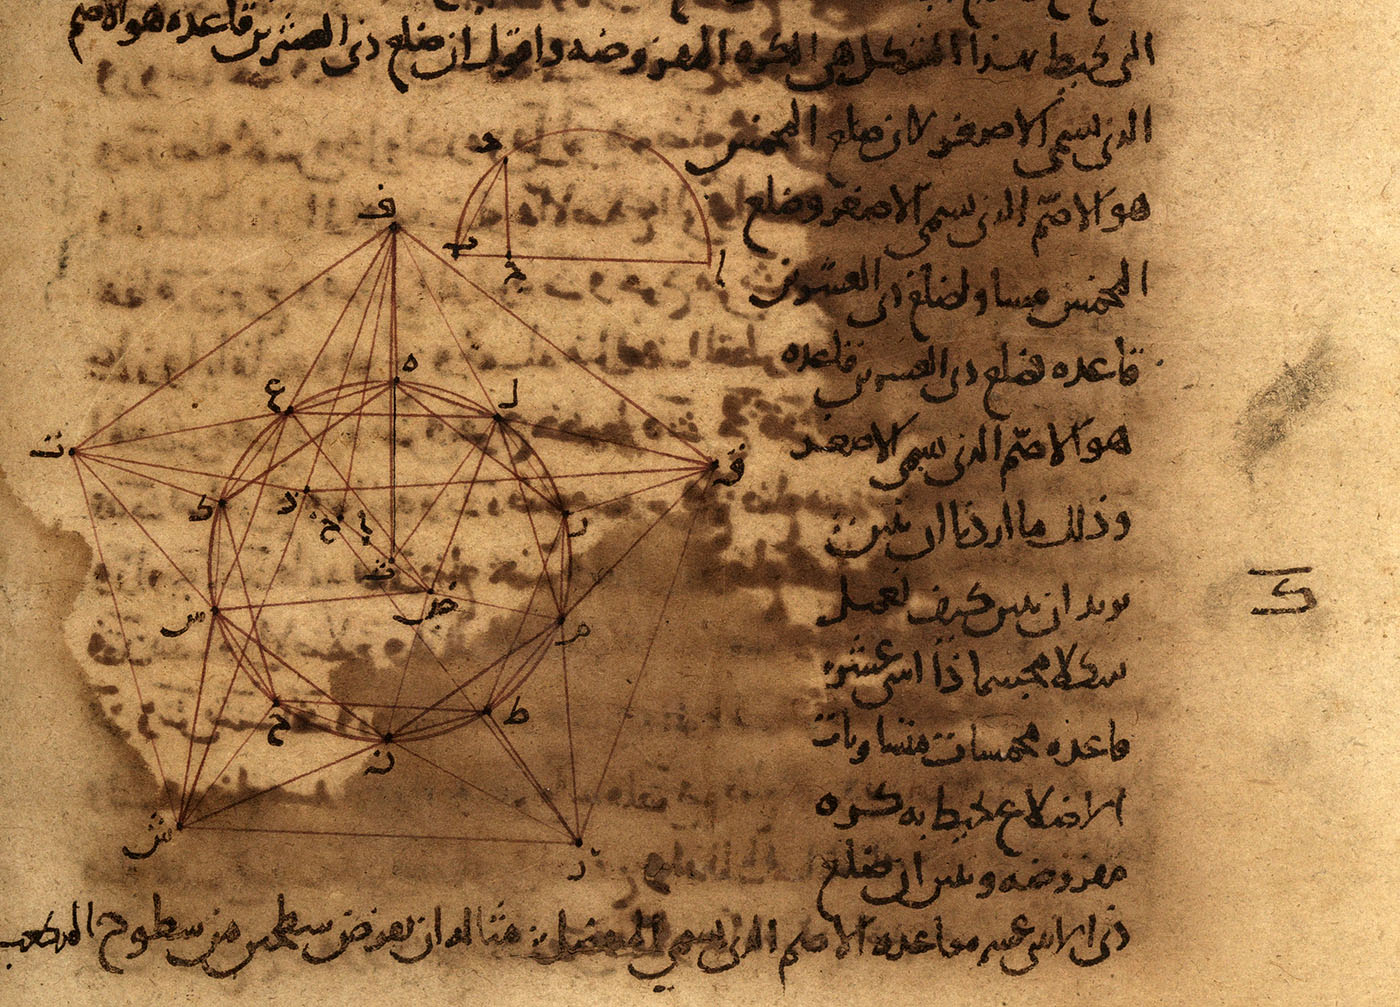 التى تحيط بهذا الشكل هى الكره المفروضه واقول ان ضلع ذى العشرين قاعده هو الاصم
الذى يسمى الاصغر لان ضلع المخمس
هو الاصمّ الذى يسمى الاصغر وضلع
المخمس مساو لضلع ذى العشرين
قاعده فضلع ذى العشرين قاعده
هو الاصمّ الذى يسمى الاصغر
وذلك ما اردنا ان نبين
نريد ان نبين كيف نعمل
شكلا مجسما ذا اثنى عشره
قاعده مخمسات متساويات
الاضلاع تحيط به كره
مفروضه ونبين ان ضلع
ذى الاثنى عشره قاعده الاصم الذى يسمى المنفصل مثاله ان نفرض سطحين من سطوح المكعب
د
ب
ج
ا
ف
ه
ع
ل
ت
ق
ك
ر
لا
خ
يا
ث
ض
س
م
ح
ط
ن
ش
ر
ك